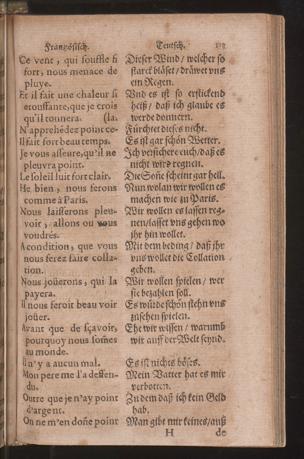 Französisch.
Teutsch. 113
Ce vent, qui souffle si
fort, nous menace de
pluye.
Et il fait une chaleur si
estouffante, que je crois
qu'il tonnera. (la.
N'apprehédez point ce-
Il fait fort beau temps.
Je vous asseure, qu'il ne
pleuvra point.
Le soleil luit fort clair.
He bien, nous ferons
comme à Paris.
Nous laisserons pleu-
voir, allons ou vous
voudrés.
A condition, que vous
nous ferez faire colla-
tion.
Nous joüerons, qui la
payera.
Il nous feroit beau voir
joüer.
Avant que de sçavoir,
pourquoy nous somes
au monde.
Il n'y a aucun mal.
Mon pere me l'a deffen-
du.
Outre que je n'ay point
d'argent.
On ne m'en doñe point
Dieser Wind / welcher so
starck bläset / dräwet vns
ein Regen.
Vnd es ist so erstickend
heiß / daß ich glaube es
werde donnern.
Fürchtet dieses nicht.
Es ist gar schön Wetter.
Ich versichere euch / daß es
nicht wird regnen.
Die Soñe scheint gar hell.
Nun wolan wir wollen es
machen wie zu Paris.
Wir wollen es lassen reg-
nen / lasset vns gehen wo
ihr hin wollet.
Mit dem beding / daß ihr
vns wollet die Collation
geben.
Wir wollen spielen / wer
sie bezahlen soll.
Es würde schön stehn vns
zusehen spielen.
Ehe wir wissen / warumb
wir auff der Welt seynd.
Es ist nichts böses.
Mein Vatter hat es mir
verbotten.
Zu dem daß ich kein Geld
hab.
Man gibt mir keines / auß
H de